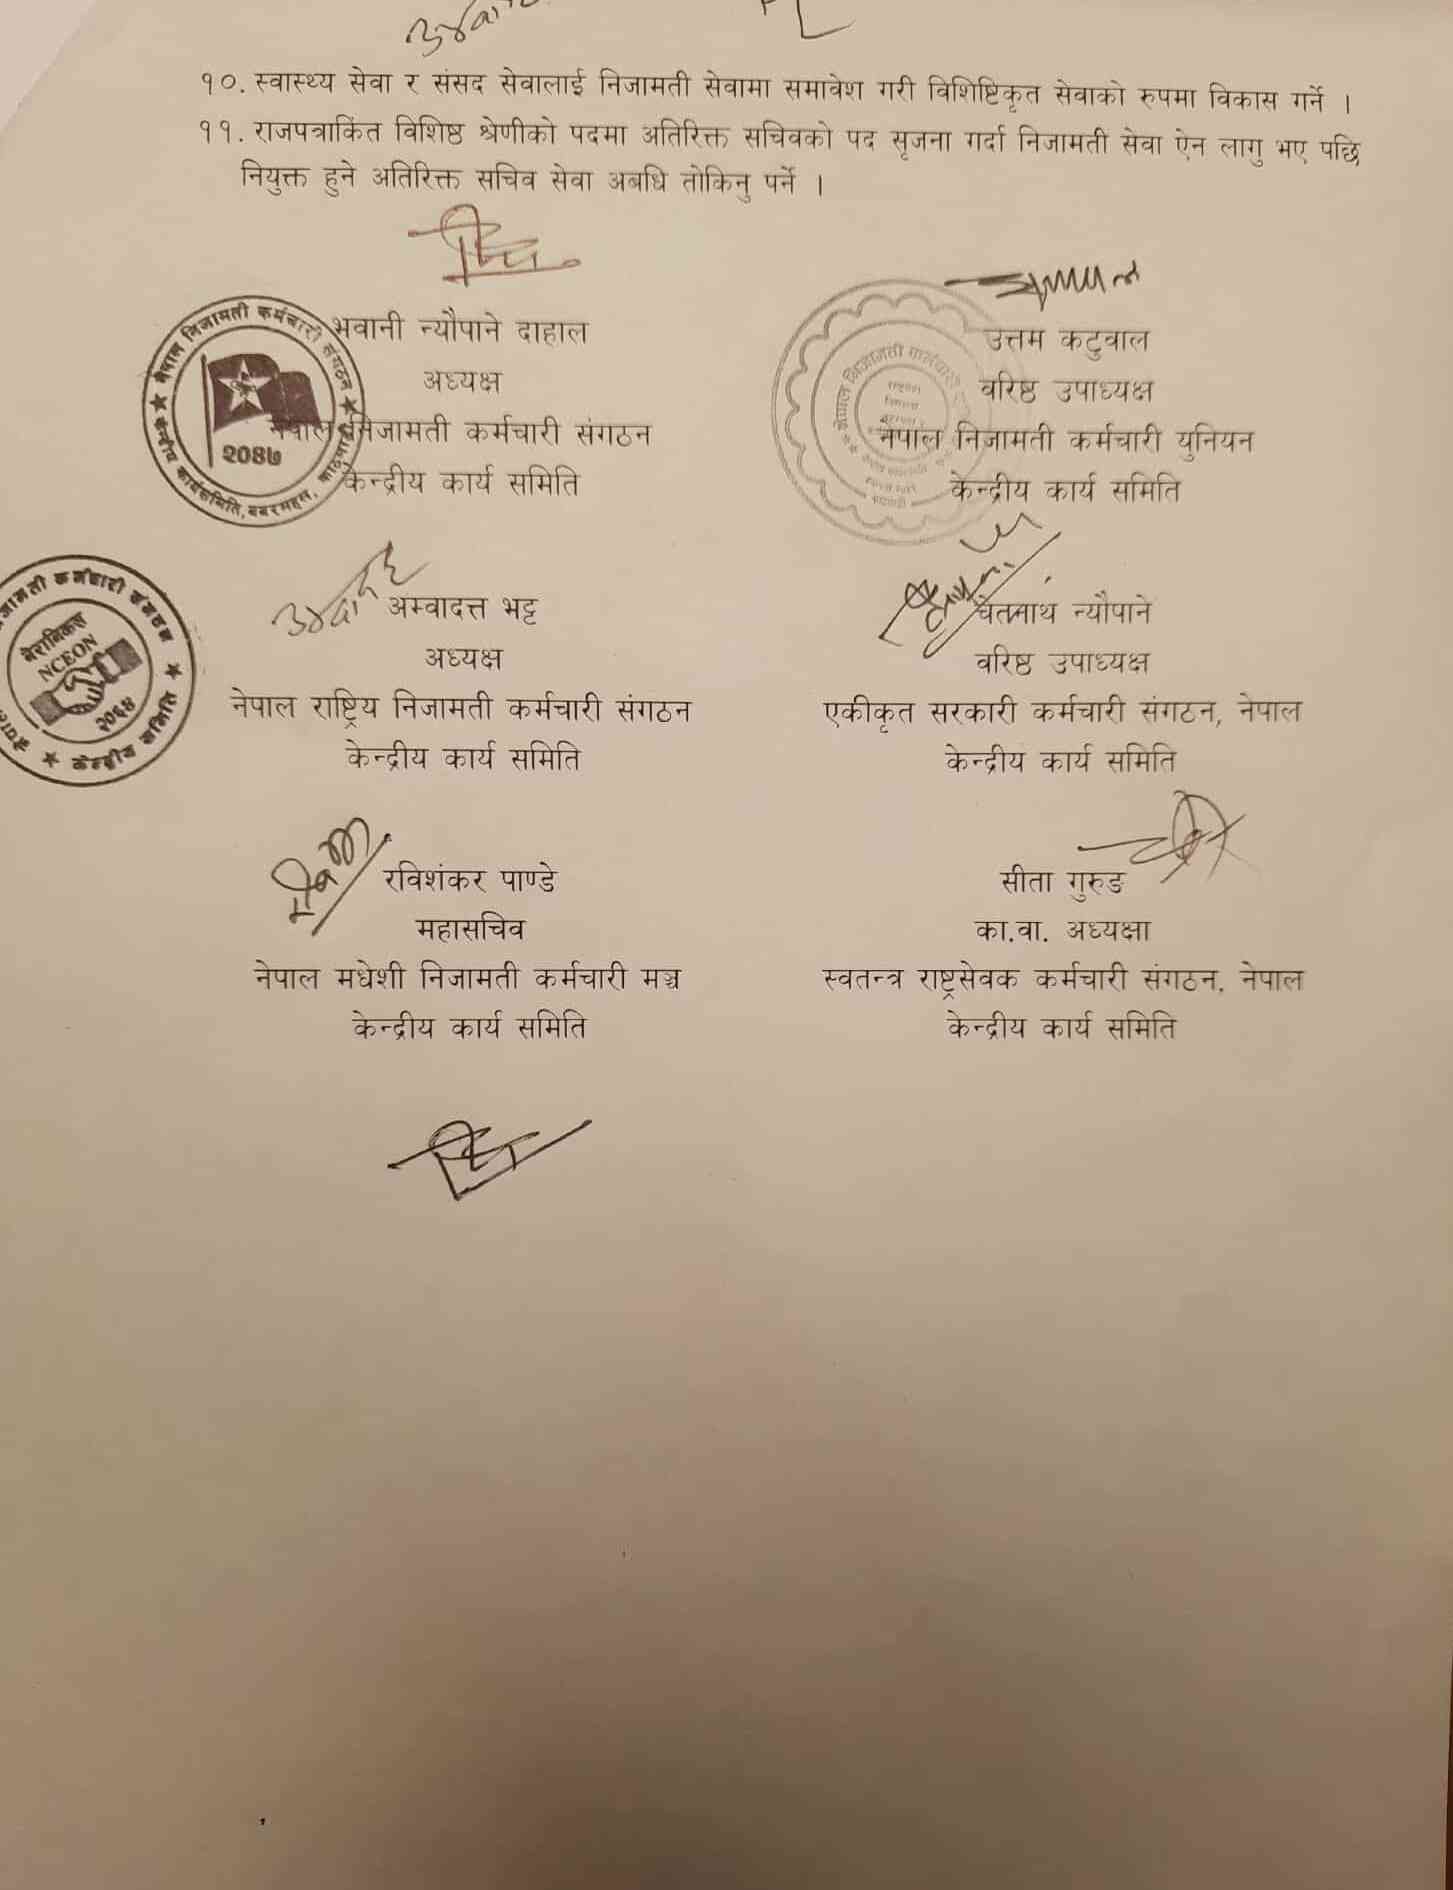 १०. स्वास्थ्य सेवा र संसद सेवालाई निजामती सेवामा समावेश गरी विशिष्टिकृत सेवाको रुपमा विकास गर्ने ।
११. राजपत्राकिंत विशिष्ठ श्रेणीको पदमा अतिरिक्त सचिवको पद सृजना गर्दा निजामती सेवा ऐन लागु भए पछि
नियुक्त हुने अतिरिक्त सचिव सेवा अबधि तोकिनु पर्ने ।
भवानी न्यौपाने दाहाल
अध्यक्ष
नेपाल निजामती कर्मचारी संगठन
केन्द्रीय कार्य समिति
नेपाल निजामती कर्मचारी संगठन
२०४७
केन्द्रीय कार्यसमिति, बबरमहल, काठमाडौं
उत्तम कटुवाल
वरिष्ठ उपाध्यक्ष
नेपाल निजामती कर्मचारी युनियन
केन्द्रीय कार्य समिति
अम्वादत्त भट्ट
अध्यक्ष
नेपाल राष्ट्रिय निजामती कर्मचारी संगठन
केन्द्रीय कार्य समिति
कर्मचारी संगठन
NCEON
२०६४
केन्द्रीय समिति
चेतनाथ न्यौपाने
वरिष्ठ उपाध्यक्ष
एकीकृत सरकारी कर्मचारी संगठन, नेपाल
केन्द्रीय कार्य समिति
रविशंकर पाण्डे
महासचिव
नेपाल मधेशी निजामती कर्मचारी मञ्च
केन्द्रीय कार्य समिति
सीता गुरुङ
का.वा. अध्यक्षा
स्वतन्त्र राष्ट्रसेवक कर्मचारी संगठन, नेपाल
केन्द्रीय कार्य समिति